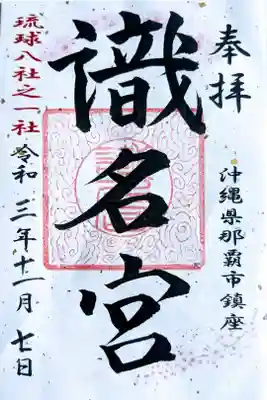 奉拝
沖縄県那覇市鎮座
識名宮
琉球八社之一社
令和三年十一月七日